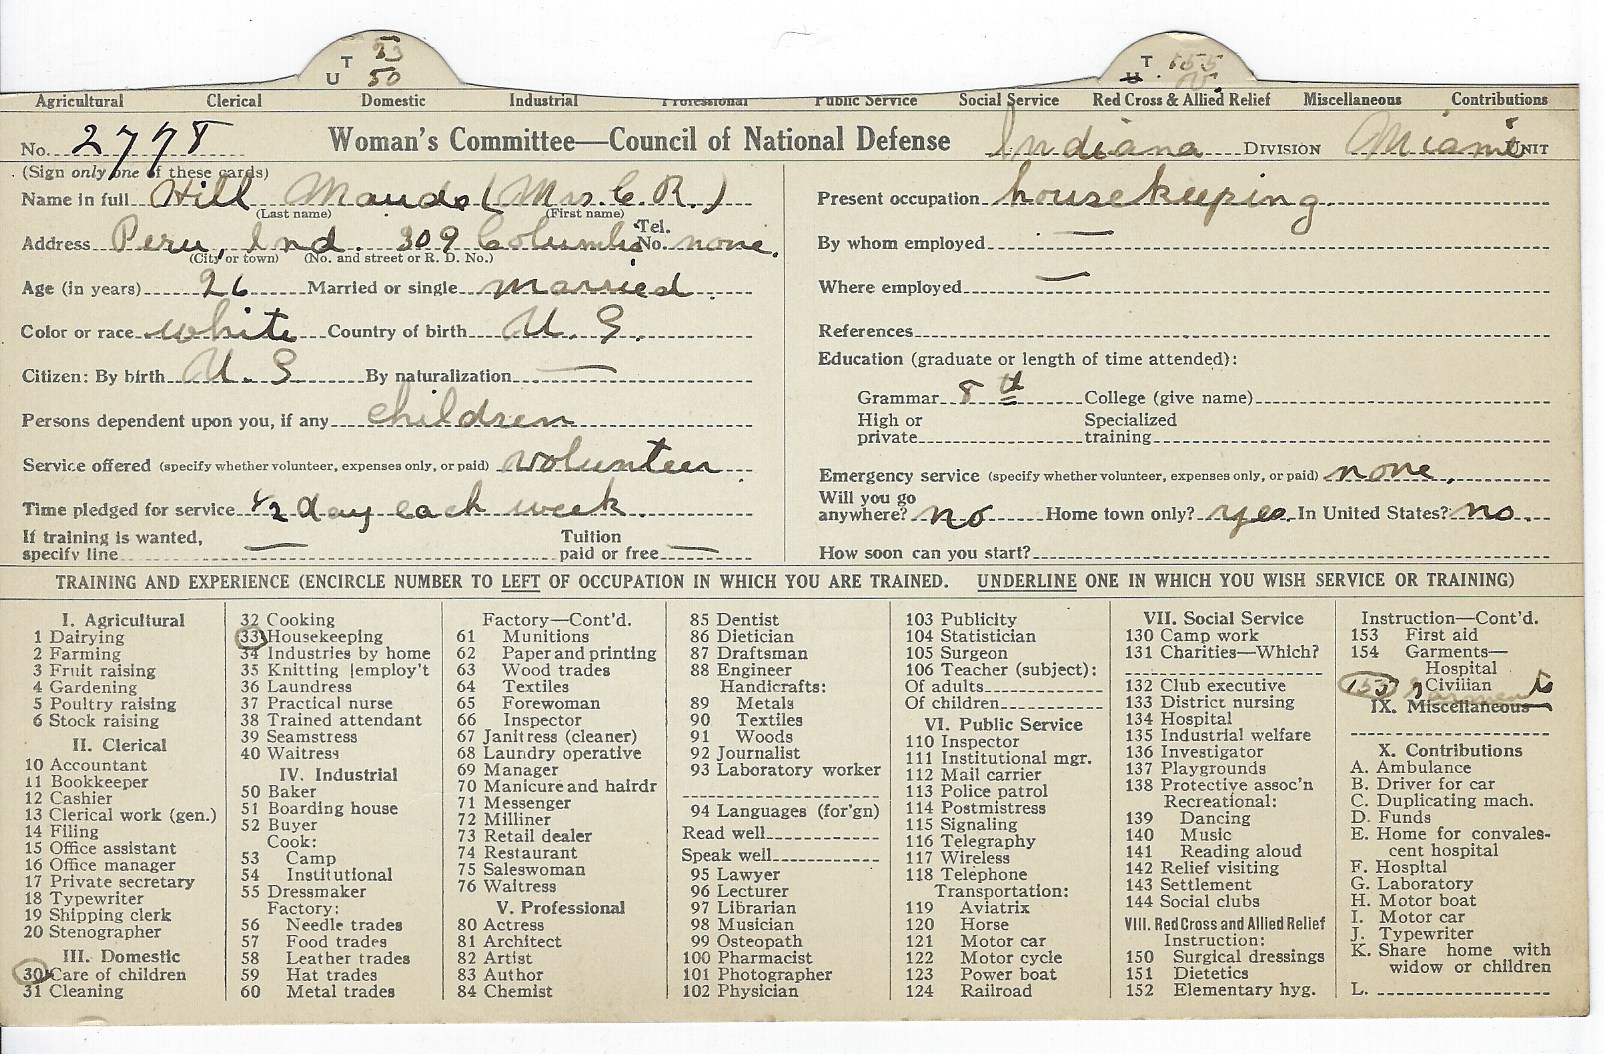 T 33
U 50
T 155
U
Agricultural Clerical Domestic Industrial Professional Public Service Social Service Red Cross & Allied Relief Miscellaneous Contributions
No. 2778 Woman's Committee—Council of National Defense Indiana DIVISION Miami UNIT
(Sign only one of these cards)
Name in full Hill Maude (Mrs. C. R.)
(Last name) (First name)
Address Peru, Ind. 309 Columbia Tel. No. none.
(City or town) (No. and street or R. D. No.)
Age (in years) 26 Married or single married.
Color or race white Country of birth U. S.
Citizen: By birth U. S By naturalization —
Persons dependent upon you, if any children
Service offered (specify whether volunteer, expenses only, or paid) volunteer
Time pledged for service 1/2 day each week.
If training is wanted, specify line — Tuition paid or free —
Present occupation housekeeping
By whom employed —
Where employed —
References
Education (graduate or length of time attended):
Grammar 8th College (give name)
High or private Specialized training
Emergency service (specify whether volunteer, expenses only, or paid) none.
Will you go anywhere? no Home town only? yes. In United States? no.
How soon can you start?
TRAINING AND EXPERIENCE (ENCIRCLE NUMBER TO LEFT OF OCCUPATION IN WHICH YOU ARE TRAINED. UNDERLINE ONE IN WHICH YOU WISH SERVICE OR TRAINING)
I. Agricultural
1 Dairying
2 Farming
3 Fruit raising
4 Gardening
5 Poultry raising
6 Stock raising
II. Clerical
10 Accountant
11 Bookkeeper
12 Cashier
13 Clerical work (gen.)
14 Filing
15 Office assistant
16 Office manager
17 Private secretary
18 Typewriter
19 Shipping clerk
20 Stenographer
III. Domestic
30 Care of children
31 Cleaning
32 Cooking
33 Housekeeping
34 Industries by home
35 Knitting [employ't
36 Laundress
37 Practical nurse
38 Trained attendant
39 Seamstress
40 Waitress
IV. Industrial
50 Baker
51 Boarding house
52 Buyer
Cook:
53 Camp
54 Institutional
55 Dressmaker
Factory:
56 Needle trades
57 Food trades
58 Leather trades
59 Hat trades
60 Metal trades
Factory—Cont'd.
61 Munitions
62 Paper and printing
63 Wood trades
64 Textiles
65 Forewoman
66 Inspector
67 Janitress (cleaner)
68 Laundry operative
69 Manager
70 Manicure and hairdr
71 Messenger
72 Milliner
73 Retail dealer
74 Restaurant
75 Saleswoman
76 Waitress
V. Professional
80 Actress
81 Architect
82 Artist
83 Author
84 Chemist
85 Dentist
86 Dietician
87 Draftsman
88 Engineer
Handicrafts:
89 Metals
90 Textiles
91 Woods
92 Journalist
93 Laboratory worker
94 Languages (for'gn)
Read well
Speak well
95 Lawyer
96 Lecturer
97 Librarian
98 Musician
99 Osteopath
100 Pharmacist
101 Photographer
102 Physician
103 Publicity
104 Statistician
105 Surgeon
106 Teacher (subject):
Of adults
Of children
VI. Public Service
110 Inspector
111 Institutional mgr.
112 Mail carrier
113 Police patrol
114 Postmistress
115 Signaling
116 Telegraphy
117 Wireless
118 Telephone
Transportation:
119 Aviatrix
120 Horse
121 Motor car
122 Motor cycle
123 Power boat
124 Railroad
VII. Social Service
130 Camp work
131 Charities—Which?
132 Club executive
133 District nursing
134 Hospital
135 Industrial welfare
136 Investigator
137 Playgrounds
138 Protective assoc'n
Recreational:
139 Dancing
140 Music
141 Reading aloud
142 Relief visiting
143 Settlement
144 Social clubs
VIII. Red Cross and Allied Relief
Instruction:
150 Surgical dressings
151 Dietetics
152 Elementary hyg.
Instruction—Cont'd.
153 First aid
154 Garments—
Hospital
Civilian
155 garments
IX. Miscellaneous
X. Contributions
A. Ambulance
B. Driver for car
C. Duplicating mach.
D. Funds
E. Home for convales-
cent hospital
F. Hospital
G. Laboratory
H. Motor boat
I. Motor car
J. Typewriter
K. Share home with
widow or children
L.